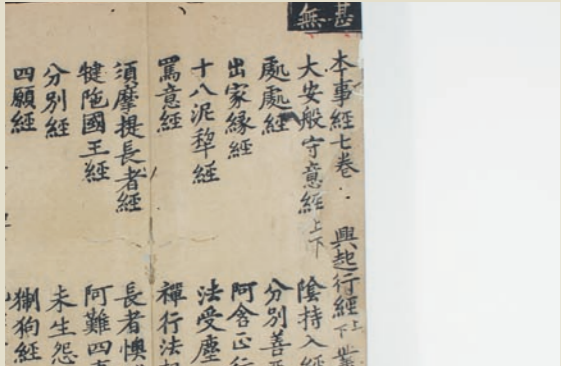 甚無
本事經七卷 興起行經上下
大安般守意經上下 陰持入經
處處經 分別善
出家緣經 阿含正行
十八泥犁經 法受塵
罵意經 禪行法
須摩提長者經 長者懊
犍陁國王經 阿難四
分別經 未生怨
四願經 猘狗經